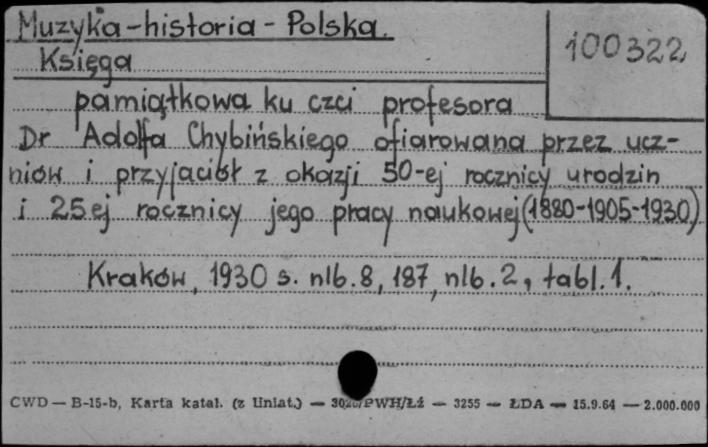 Muzyka-historia - Polska.
100322
Księga
pamiątkowa ku czci profesora
Dr Adolfa Chybińskiego ofiarowana przez ucz-
niów i przyjaciół z okazji 50-ej rocznicy urodzin
i 25 ej rocznicy jego pracy naukowej (1880-1905-1930)
Kraków, 1930 s. nlb. 8, 187, nlb. 2, tabl. 1.
CWD — B-15-b, Karta katal. (z liniat.) — /PWH/Łź — 3255 — ŁDA — 15.9.64 — 2.000.000